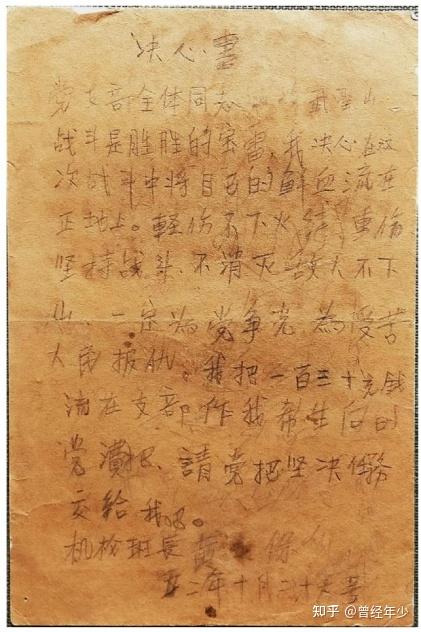 决心書
党支部全体同志
战斗是胜胜的宝雷,我决心在这
次战斗中将自己的鲜血流在
正地上。輕伤不下火线 重伤
坚持战斗、不消灭敌人不下
山、一定为党争光 為受苦
人民报仇、我把一百三十元钱
流在支部作我希生问的
党费吧、請党把坚决任務
交给我吧。
机枪班長 黄 保
五二年十月二十 号
知乎 @曾经年少